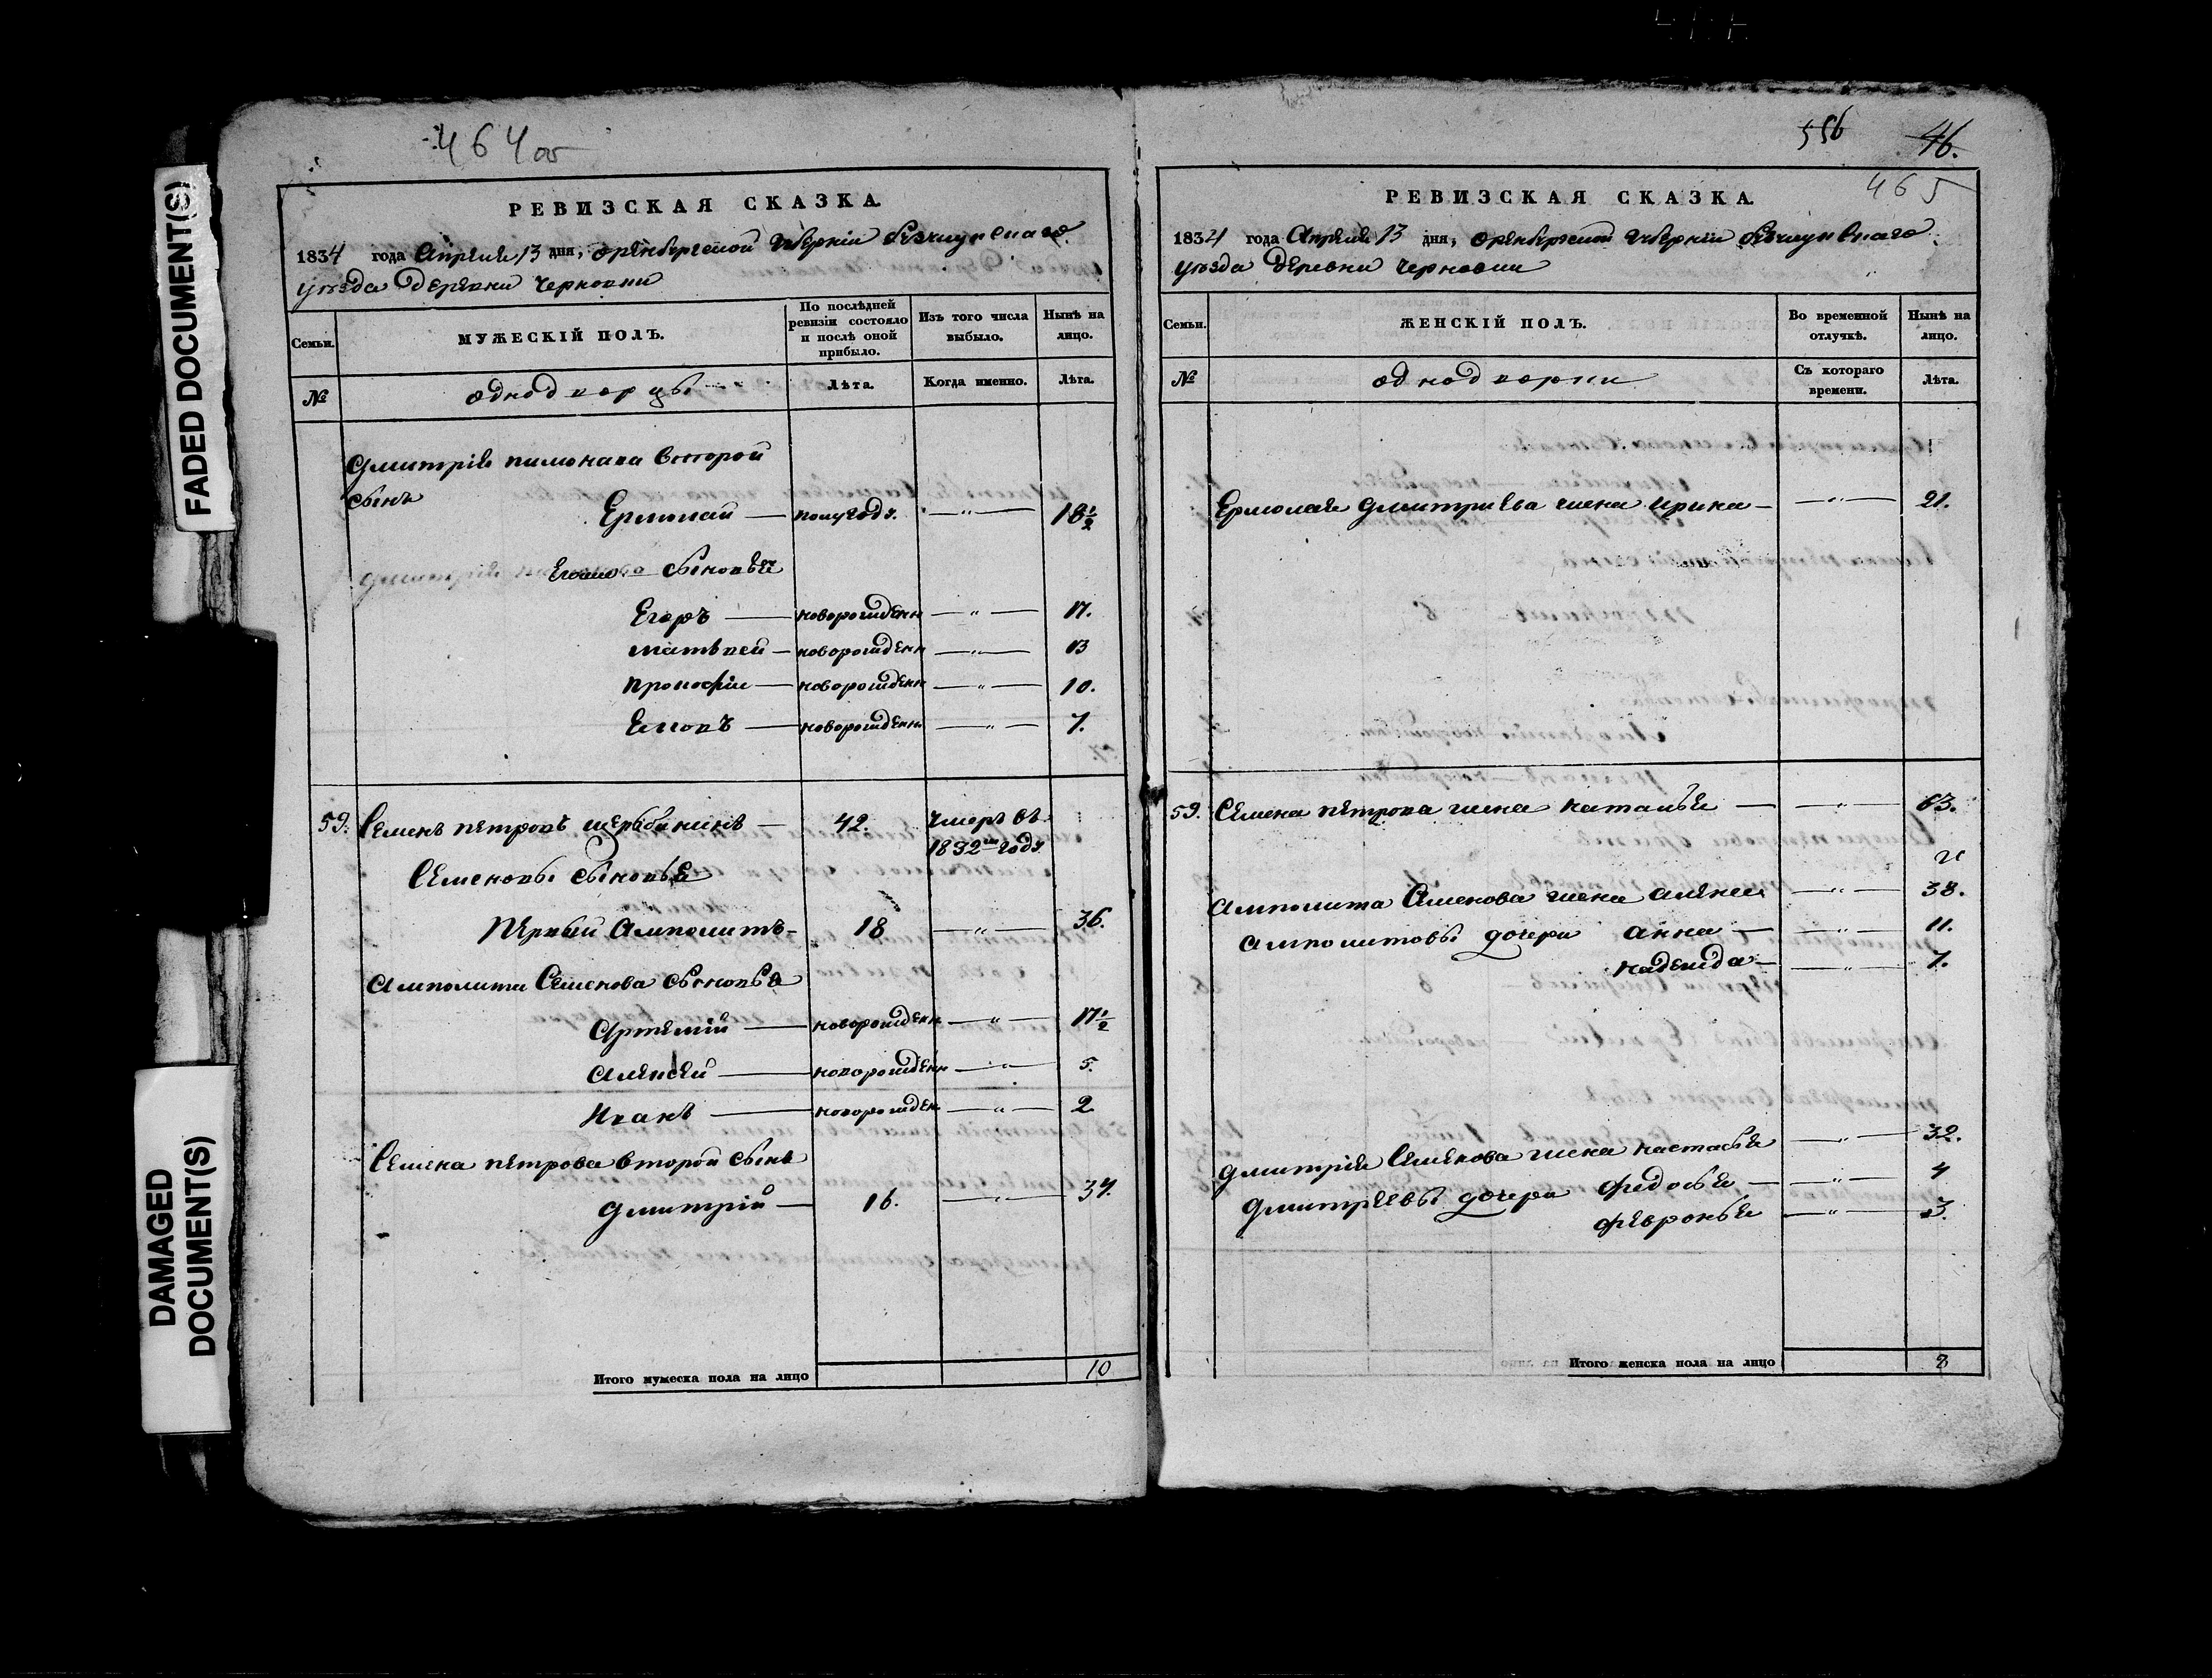 FADED DOCUMENT(S)
DAMAGED
DOCUMENT(S)
464 об
РЕВИЗСКАЯ СКАЗКА.
1834 года Апреля 13 дня, оренбургской губернии
уезда деревни черновки
Семьи.
МУЖЕСКІЙ ПОЛЪ.
По послѣдней ревизіи состояло и послѣ оной прибыло.
Изъ того числа выбыло.
Нынѣ на лицо.
№
однодворцы
Лѣта.
Когда именно.
Лѣта.
Дмитрія второй
сынъ
Ермолай — полугоду. — " — 18 1/2
сыновья
Егоръ — новорожденн — " — 17.
матвей — новорожденн — " — 13
прокофій — новорожденн — " — 10.
— новорожденн — " — 7.
59. Семенъ петровъ щербининъ — 42. умеръ въ
1832мъ году
Семеновы сыновья
первый Амполитъ — 18 — " — 36.
Амполита Семенова сыновья
Артемій — новорожденн — " — 17 1/2
Алексей — новорожденн — " — 5.
Иванъ — новорожден — " — 2
Семена петрова второй сынъ
Дмитрій — 16. — " — 34.
Итого мужеска пола на лицо 10
556 46.
465
РЕВИЗСКАЯ СКАЗКА.
1834 года Апреля 13 дня, оренбургской губерніи
уезда деревни черновки
Семьи.
ЖЕНСКІЙ ПОЛЪ.
Во временной отлучкѣ.
Нынѣ на лицо.
№
однодворки
Съ котораго времени.
Лѣта.
Ермолая Дмитриева жена ирина — — " — 21.
59. Семена петрова жена наталья — — " — 63.
Амполита Семенова жена — " — 38.
Амполитовы дочери анна — — " — 11.
надежда — — " — 7.
Дмитрія Семенова жена настасья — " — 32.
Дмитреевы дочери федосья — — " — 4
февронья — " — 3.
Итого женска пола на лицо 8